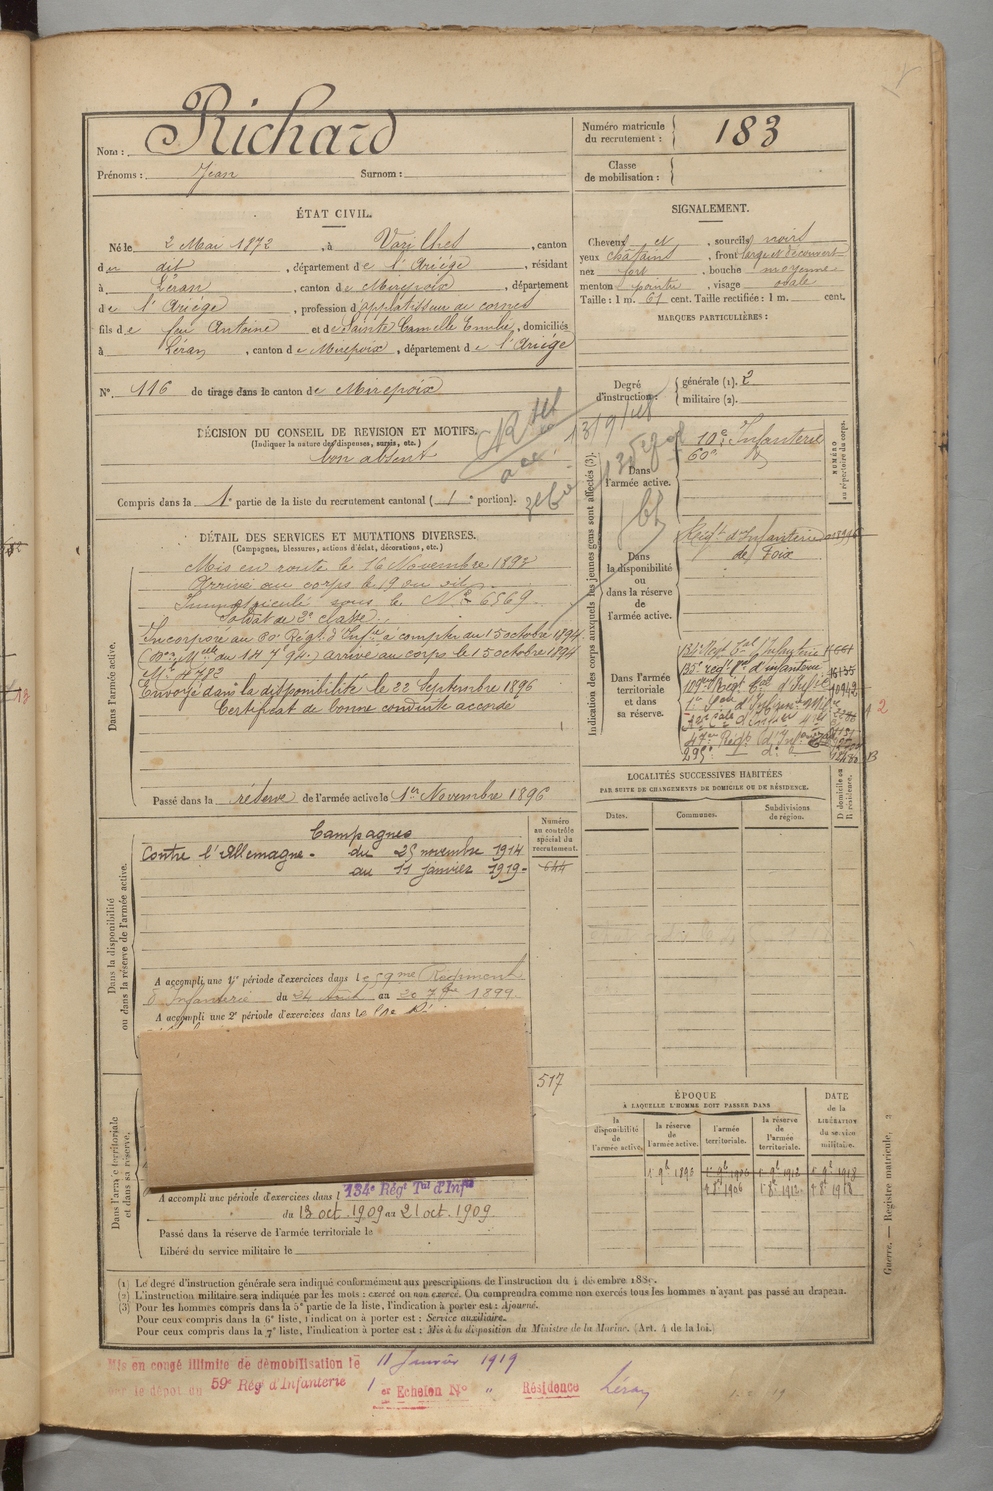 Nom : Richard
Prénoms : Jean Surnom :
Numéro matricule du recrutement : 183
Classe de mobilisation :
ÉTAT CIVIL.
Né le 2 Mai 1872, à Varilhes, canton
du dit, département de l'Ariége, résidant
à Léran, canton de Mirepoix, département
de l'Ariége, profession d'applatisseur de cornes
fils de feu Antoine et de Sainte Camelle Emilie, domiciliés
à Léran, canton de Mirepoix, département de l'Ariége
N° 116 de tirage dans le canton de Mirepoix
SIGNALEMENT.
Cheveux et, sourcils noirs
yeux chatains, front large et découvert
nez fort, bouche moyenne
menton pointu, visage ovale
Taille : 1 m. 61 cent. Taille rectifiée : 1 m. cent.
MARQUES PARTICULIÈRES :
Degré d'instruction : générale (1). 2
militaire (2).
DÉCISION DU CONSEIL DE REVISION ET MOTIFS.
(Indiquer la nature des dispenses, sursis, etc.)
bon absent
Compris dans la 1e partie de la liste du recrutement cantonal ( 1e portion).
DÉTAIL DES SERVICES ET MUTATIONS DIVERSES.
(Campagnes, blessures, actions d'éclat, décorations, etc.)
Dans l'armée active.
Mis en route le 16 Novembre 1893
Arrivé au corps le 19 du dit
Immatriculé sous le N° 6569
Soldat de 2e classe
Incorporé au 60e Régt d'Infie à compter du 15 octobre 1894
arrivé au corps le 15 octobre 1894
Mle 4782
Envoyé dans la disponibilité le 22 Septembre 1896
Certificat de bonne conduite accordé
Passé dans la réserve de l'armée active le 1er Novembre 1896
Indication des corps auxquels les jeunes gens sont affectés (3).
NUMÉRO au répertoire du corps.
Dans l'armée active.
10e Infanterie
60e do
Dans la disponibilité ou dans la réserve de l'armée active.
Régt d'Infanterie
de Foix
Dans l'armée territoriale et dans sa réserve.
134e Régt Tal d'Infanterie
135e régt d'infanterie
295e do
LOCALITÉS SUCCESSIVES HABITÉES
PAR SUITE DE CHANGEMENTS DE DOMICILE OU DE RÉSIDENCE.
Dates. Communes. Subdivisions de région. D domicile ou R résidence.
Dans la disponibilité ou dans la réserve de l'armée active.
Numéro au contrôle spécial du recrutement.
644
Campagnes
Contre l'Allemagne - du 25 novembre 1914
au 11 janvier 1919 -
A accompli une 1re période d'exercices dans le 59me Régiment
d'Infanterie du 24 Août au 20 7bre 1899
A accompli une 2e période d'exercices dans le
517
Dans l'armée territoriale et dans sa réserve.
A accompli une période d'exercices dans l 134e Régt Tal d'Infie
du 13 oct. 1909 au 21 oct. 1909
Passé dans la réserve de l'armée territoriale le
Libéré du service militaire le
ÉPOQUE
À LAQUELLE L'HOMME DOIT PASSER DANS
la disponibilité de l'armée active. la réserve de l'armée active. l'armée territoriale. la réserve de l'armée territoriale.
DATE de la LIBÉRATION du service militaire.
1 9b 1896 1 9b 1906 1 9b 1912 1 9b 1918
1 8b 1906 1 8b 1912 1 8b 1918
Guerre. — Registre matricule,
(1) Le degré d'instruction générale sera indiqué conformément aux prescriptions de l'instruction du 4 décembre 1889.
(2) L'instruction militaire sera indiquée par les mots : exercé ou non exercé. On comprendra comme non exercés tous les hommes n'ayant pas passé au drapeau.
(3) Pour les hommes compris dans la 5e partie de la liste, l'indication à porter est : Ajourné.
Pour ceux compris dans la 6e liste, l'indication à porter est : Service auxiliaire.
Pour ceux compris dans la 7e liste, l'indication à porter est : Mis à la disposition du Ministre de la Marine. (Art. 4 de la loi.)
Mis en congé illimité de démobilisation le 11 Janvier 1919
par le dépôt du 59e Rég d'Infanterie 1er Echelon N° " Résidence Léran